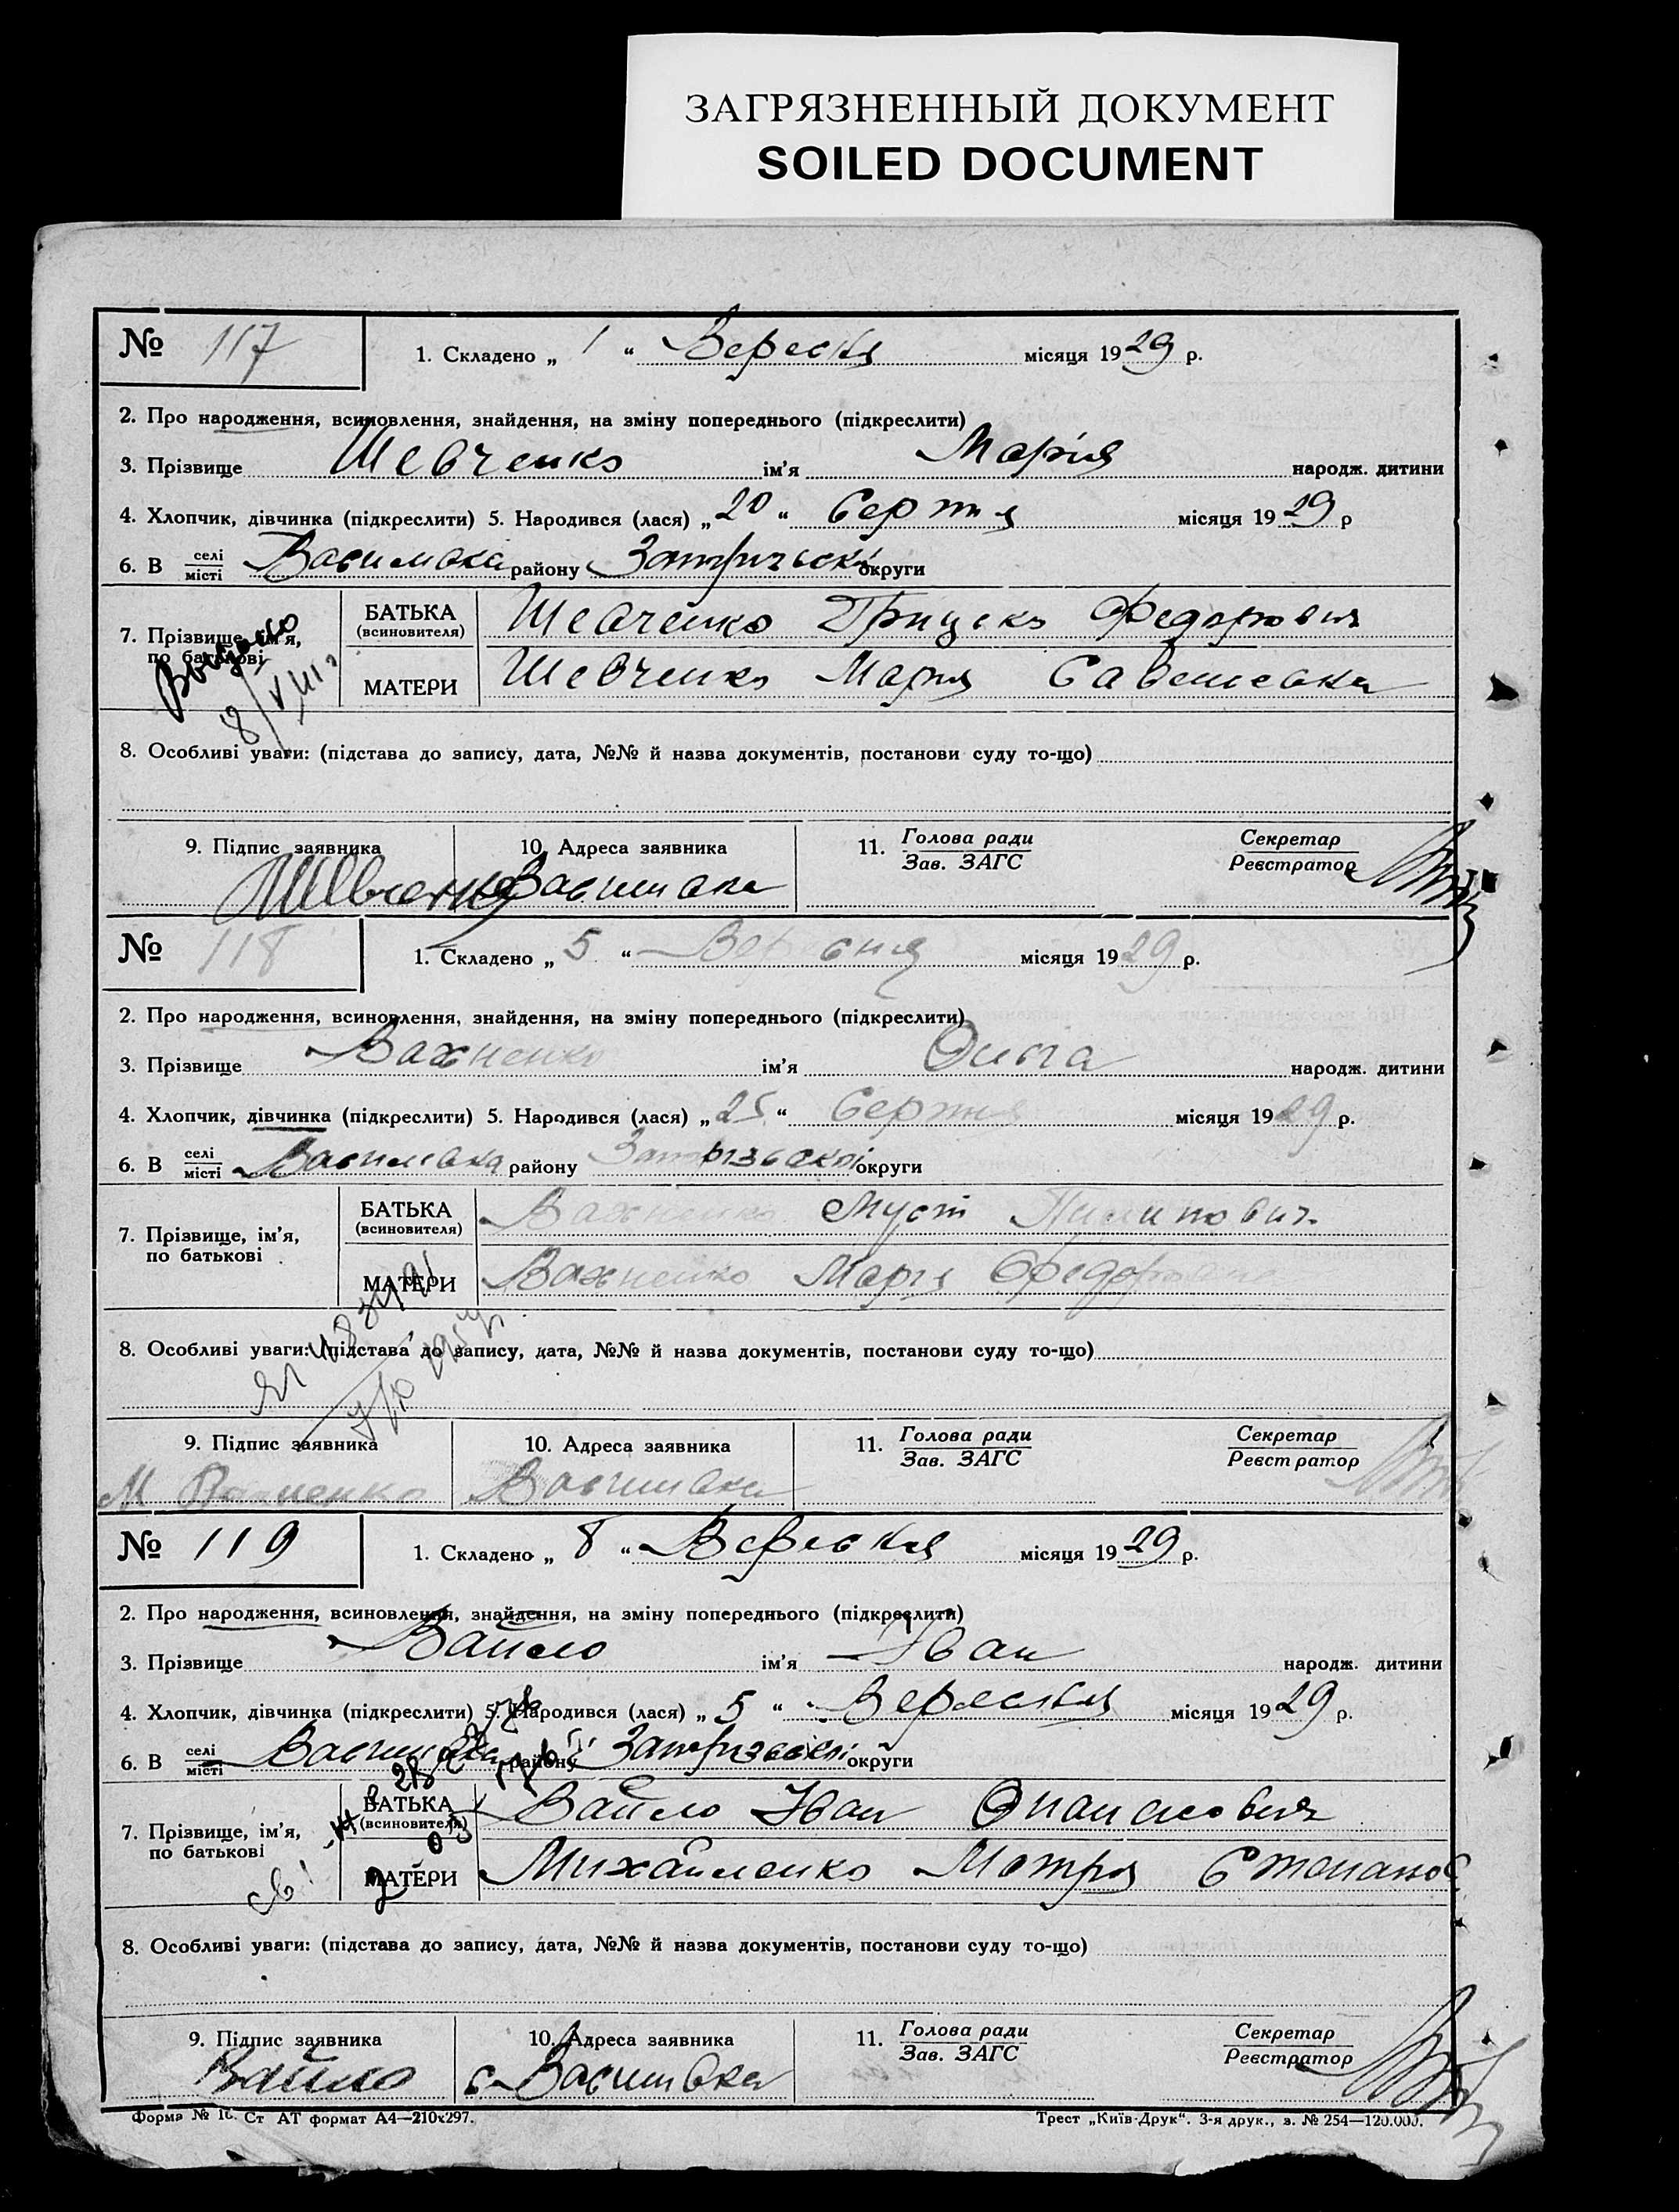 ЗАГРЯЗНЕННЫЙ ДОКУМЕНТ
SOILED DOCUMENT
№ 117 1. Складено „ 1 “ Вересня місяця 1929 р.
2. Про народження, всиновлення, знайдення, на зміну попереднього (підкреслити)
3. Прізвище Шевченко ім'я Марія народж. дитини
4. Хлопчик, дівчинка (підкреслити) 5. Народився (лася) „ 20 “ Серпня місяця 1929 р
6. В селі/місті Василівка району округи
7. Прізвище, ім'я, по батькові
БАТЬКА (всиновителя) Шевченко Грицько Федорович
МАТЕРИ Шевченко Мария
8. Особливі уваги: (підстава до запису, дата, №№ й назва документів, постанови суду то-що)
9. Підпис заявника 10. Адреса заявника 11. Голова ради/Зав. ЗАГС Секретар/Реєстратор
Шевченко Василивка
№ 118 1. Складено „ 5 “ Вересня місяця 1929 р.
2. Про народження, всиновлення, знайдення, на зміну попереднього (підкреслити)
3. Прізвище Вахненко ім'я Ольга народж. дитини
4. Хлопчик, дівчинка (підкреслити) 5. Народився (лася) „ 25 “ Серпня місяця 1929 р.
6. В селі/місті Василівка району округи
7. Прізвище, ім'я, по батькові
БАТЬКА (всиновителя) Вахненко Муст Пилипович
МАТЕРИ Вахненко Марія Федоровна
8. Особливі уваги: (підстава до запису, дата, №№ й назва документів, постанови суду то-що)
9. Підпис заявника 10. Адреса заявника 11. Голова ради/Зав. ЗАГС Секретар/Реєстратор
М Вахненко Василивка
№ 119 1. Складено „ 8 “ Вересня місяця 1929 р.
2. Про народження, всиновлення, знайдення, на зміну попереднього (підкреслити)
3. Прізвище Вайло ім'я Іван народж. дитини
4. Хлопчик, дівчинка (підкреслити) 5. Народився (лася) „ 5 “ Вересня місяця 1929 р.
6. В селі/місті Василивка району округи
7. Прізвище, ім'я, по батькові
БАТЬКА (всиновителя) Вайло Іван Опанасович
МАТЕРИ Михайленко Мотря Степанов
8. Особливі уваги: (підстава до запису, дата, №№ й назва документів, постанови суду то-що)
9. Підпис заявника 10. Адреса заявника 11. Голова ради/Зав. ЗАГС Секретар/Реєстратор
Вайло с Василивка
Форма № 16. Ст АТ формат А4—210х297. Трест „Київ-Друк“. 3-я друк., з. № 254—120.000.